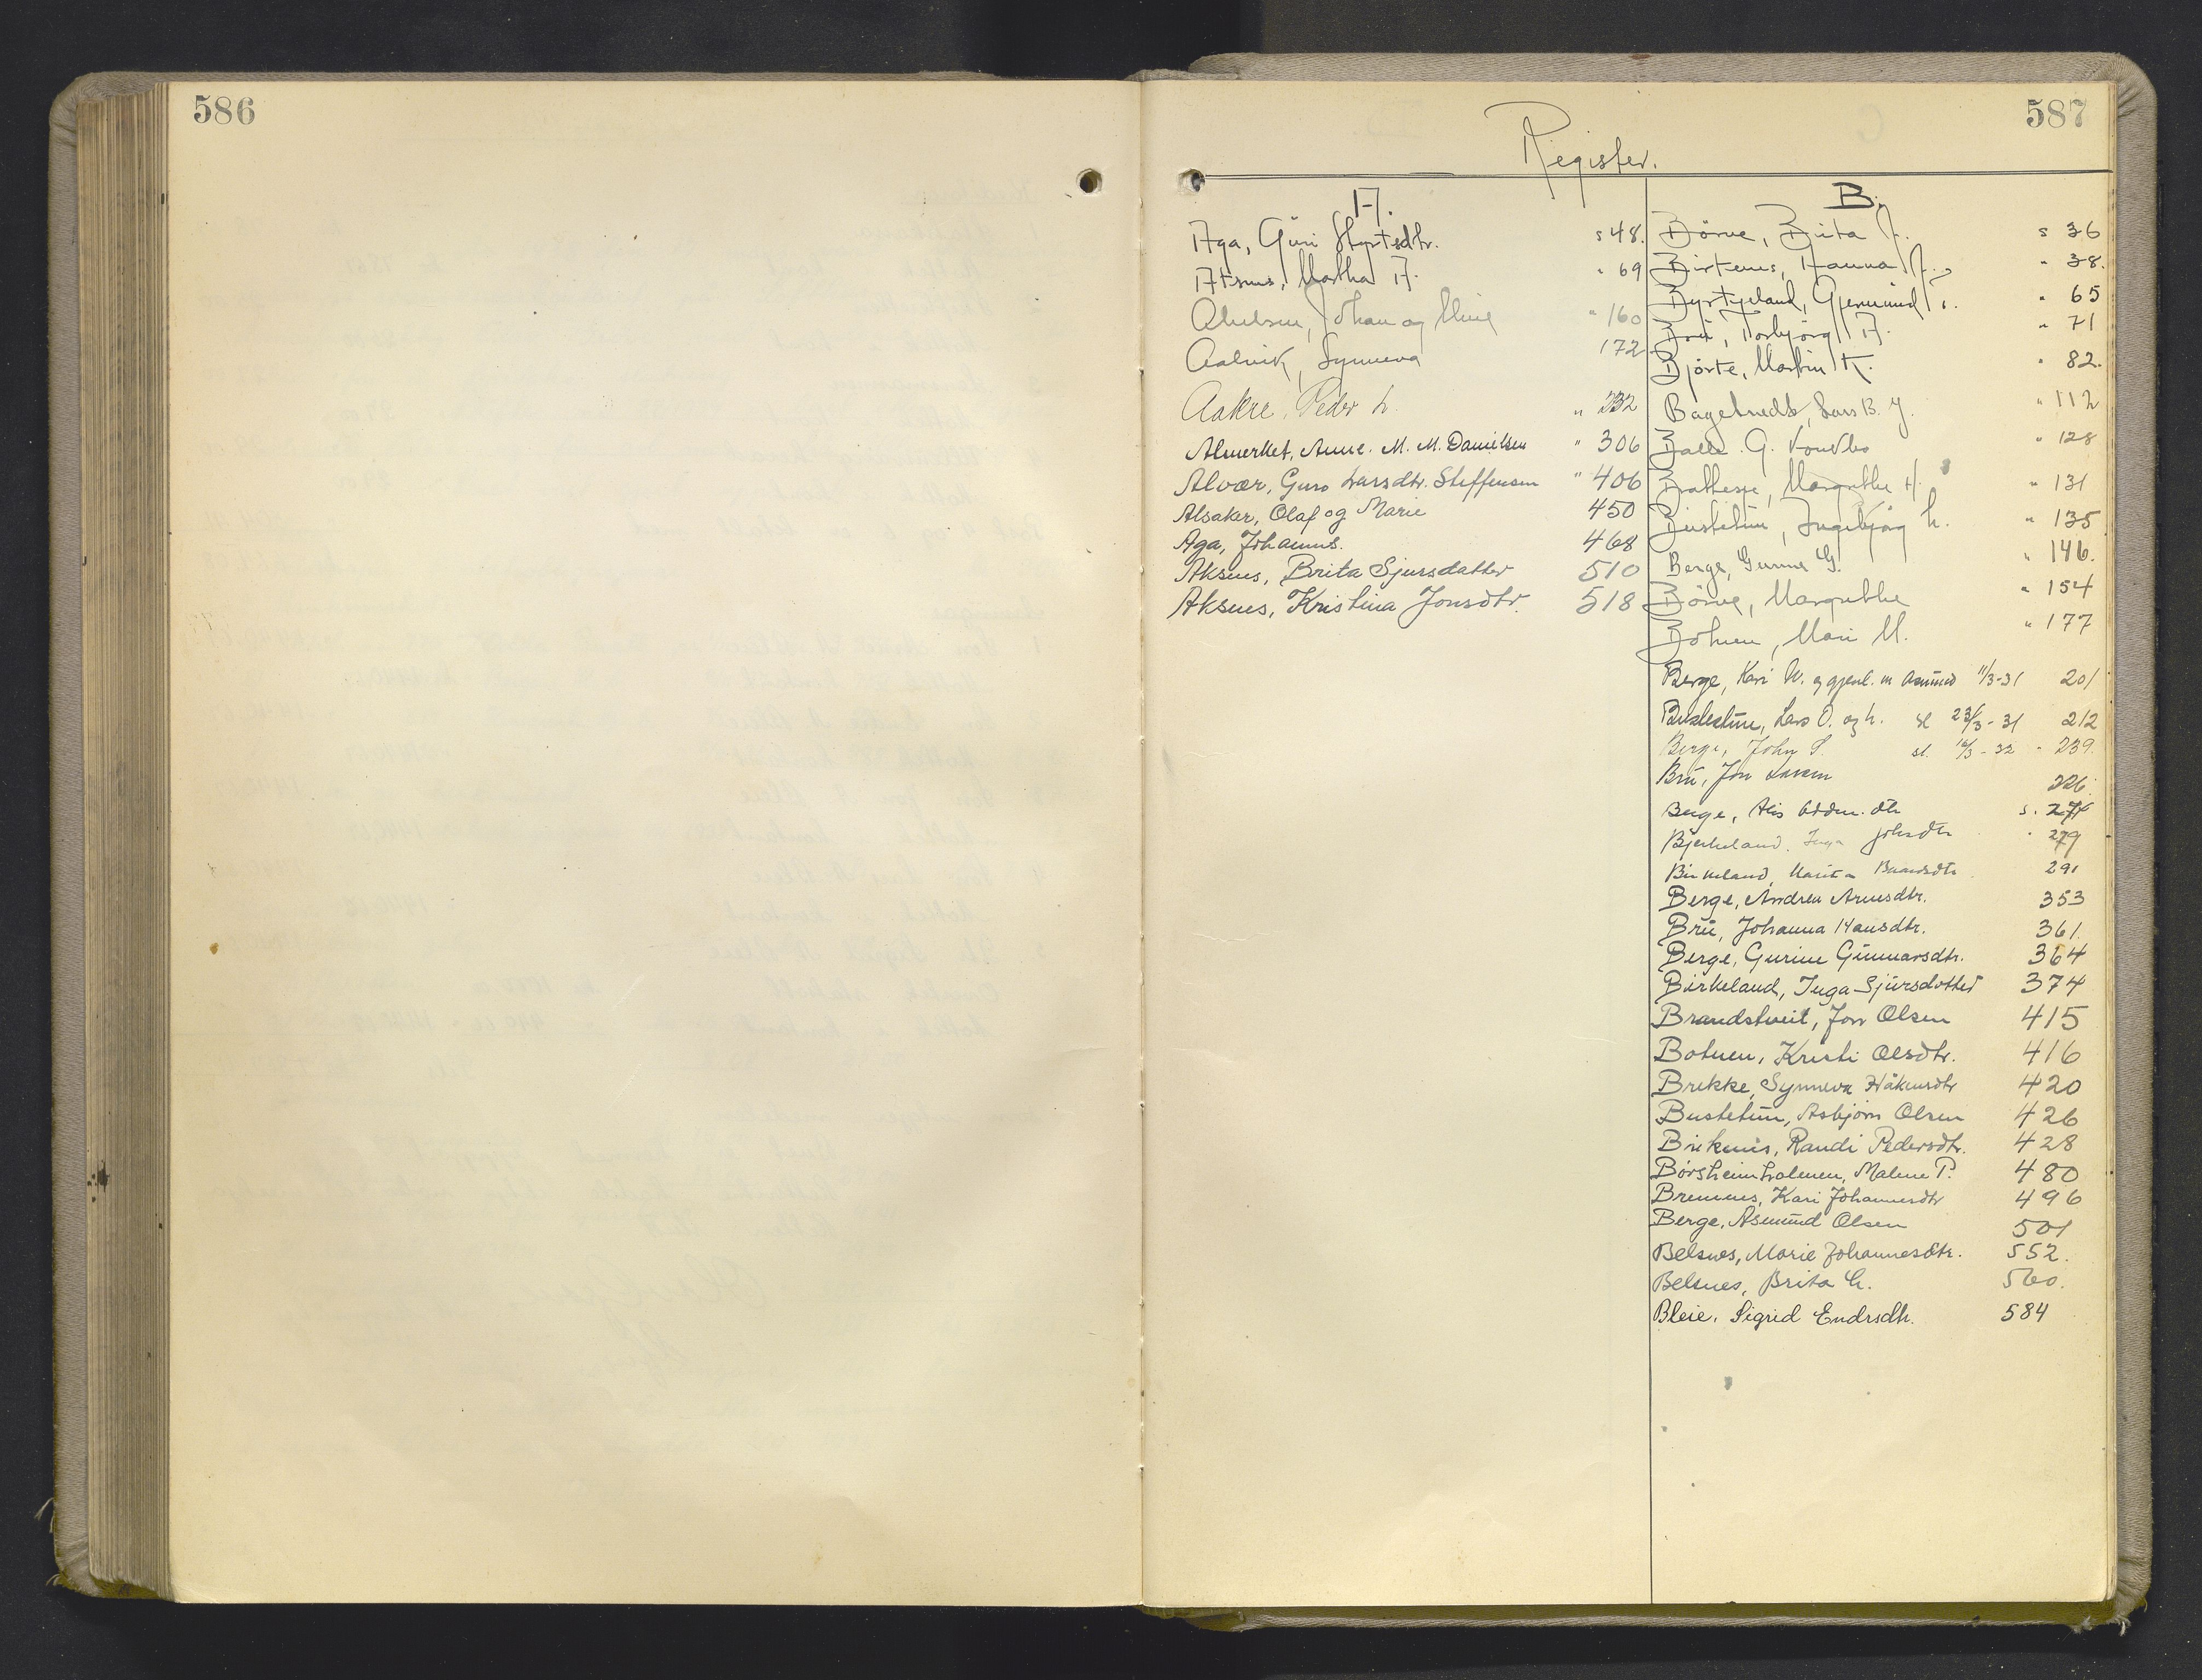 586
587
Register.
A.
Aga, Guri Styrksdtr. s 48.
Aksnes, Martha A. " 69
Johan og " 160
Aalvik, Synneva 172
Aakre, Peder L. " 232
Almerket, Anne. M. M. Danielsen " 306
Alvær, Guro Larsdtr. Steffensen " 406
Alsaker, Olaf og Marie 450
Aga, Johannes. 468
Aksnes, Brita Sjursdatter 510
Aksnes, Kristina Jonsdtr. 518
B.
Börve, Brita J. s 36
Birkenes, Hanna J. " 38.
Byrkjeland, Gjermund T. " 65
Torbjörg A. " 71
Bjørke, Martin K. " 82.
Lars B. J. " 112
G. " 128
Margrethe H. " 131
Bustetun, Ingebjörg L. " 135
Berge, Gunnar G. " 146.
Börve, Margrethe " 154
Botnen, Mari M. " 177
Berge, Kari W. og gjenl. m Asmund 11/3-31 201
Bustetun, Lars O. og h. sl 23/3-31 212
Berge, John S. sl. 16/3-32 " 239.
Bru, Jon Larsen 226.
Berge, dtr s. 274
Bjerkeland, Inga Johsdtr " 279
Birkeland, 291
Berge, Andrea Arnesdtr. 353
Bru, Johanna Hansdtr. 361.
Berge, Gurine Gunnarsdtr. 364
Birkeland, Inga Sjursdotter 374
Brandstveit, Jon Olsen 415
Botnen, Kristi Olsdtr. 416
Brekke, Synneva Håkonsdtr 420
Bustetun, Asbjørn Olsen 426
Birkenes, Randi Pedersdtr. 428
Børsheimholmen, Malene P. 480
Bremnes, Kari Johannesdtr 496
Berge, Asmund Olsen 501
Belsnes, Marie Johannesdtr. 552.
Belsnes, Brita L. 560.
Bleie, Sigrid Endrsdtr. 584